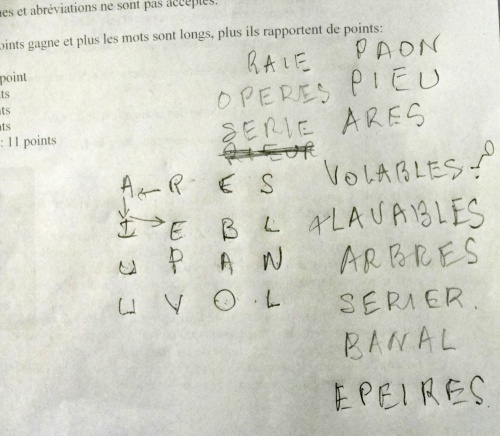 nes et abréviations ne sont pas acceptés.
oints gagne et plus les mots sont longs, plus ils rapportent de points:
point
nts
nts
nts
: 11 points
RAIE
OPERES
SERIE
RIEUR
PAON
PIEU
ARES
VOLABLES
LAVABLES
ARBRES
SERIER.
BANAL
EPEIRES
A R E S
I E B L
U P A N
U V O L